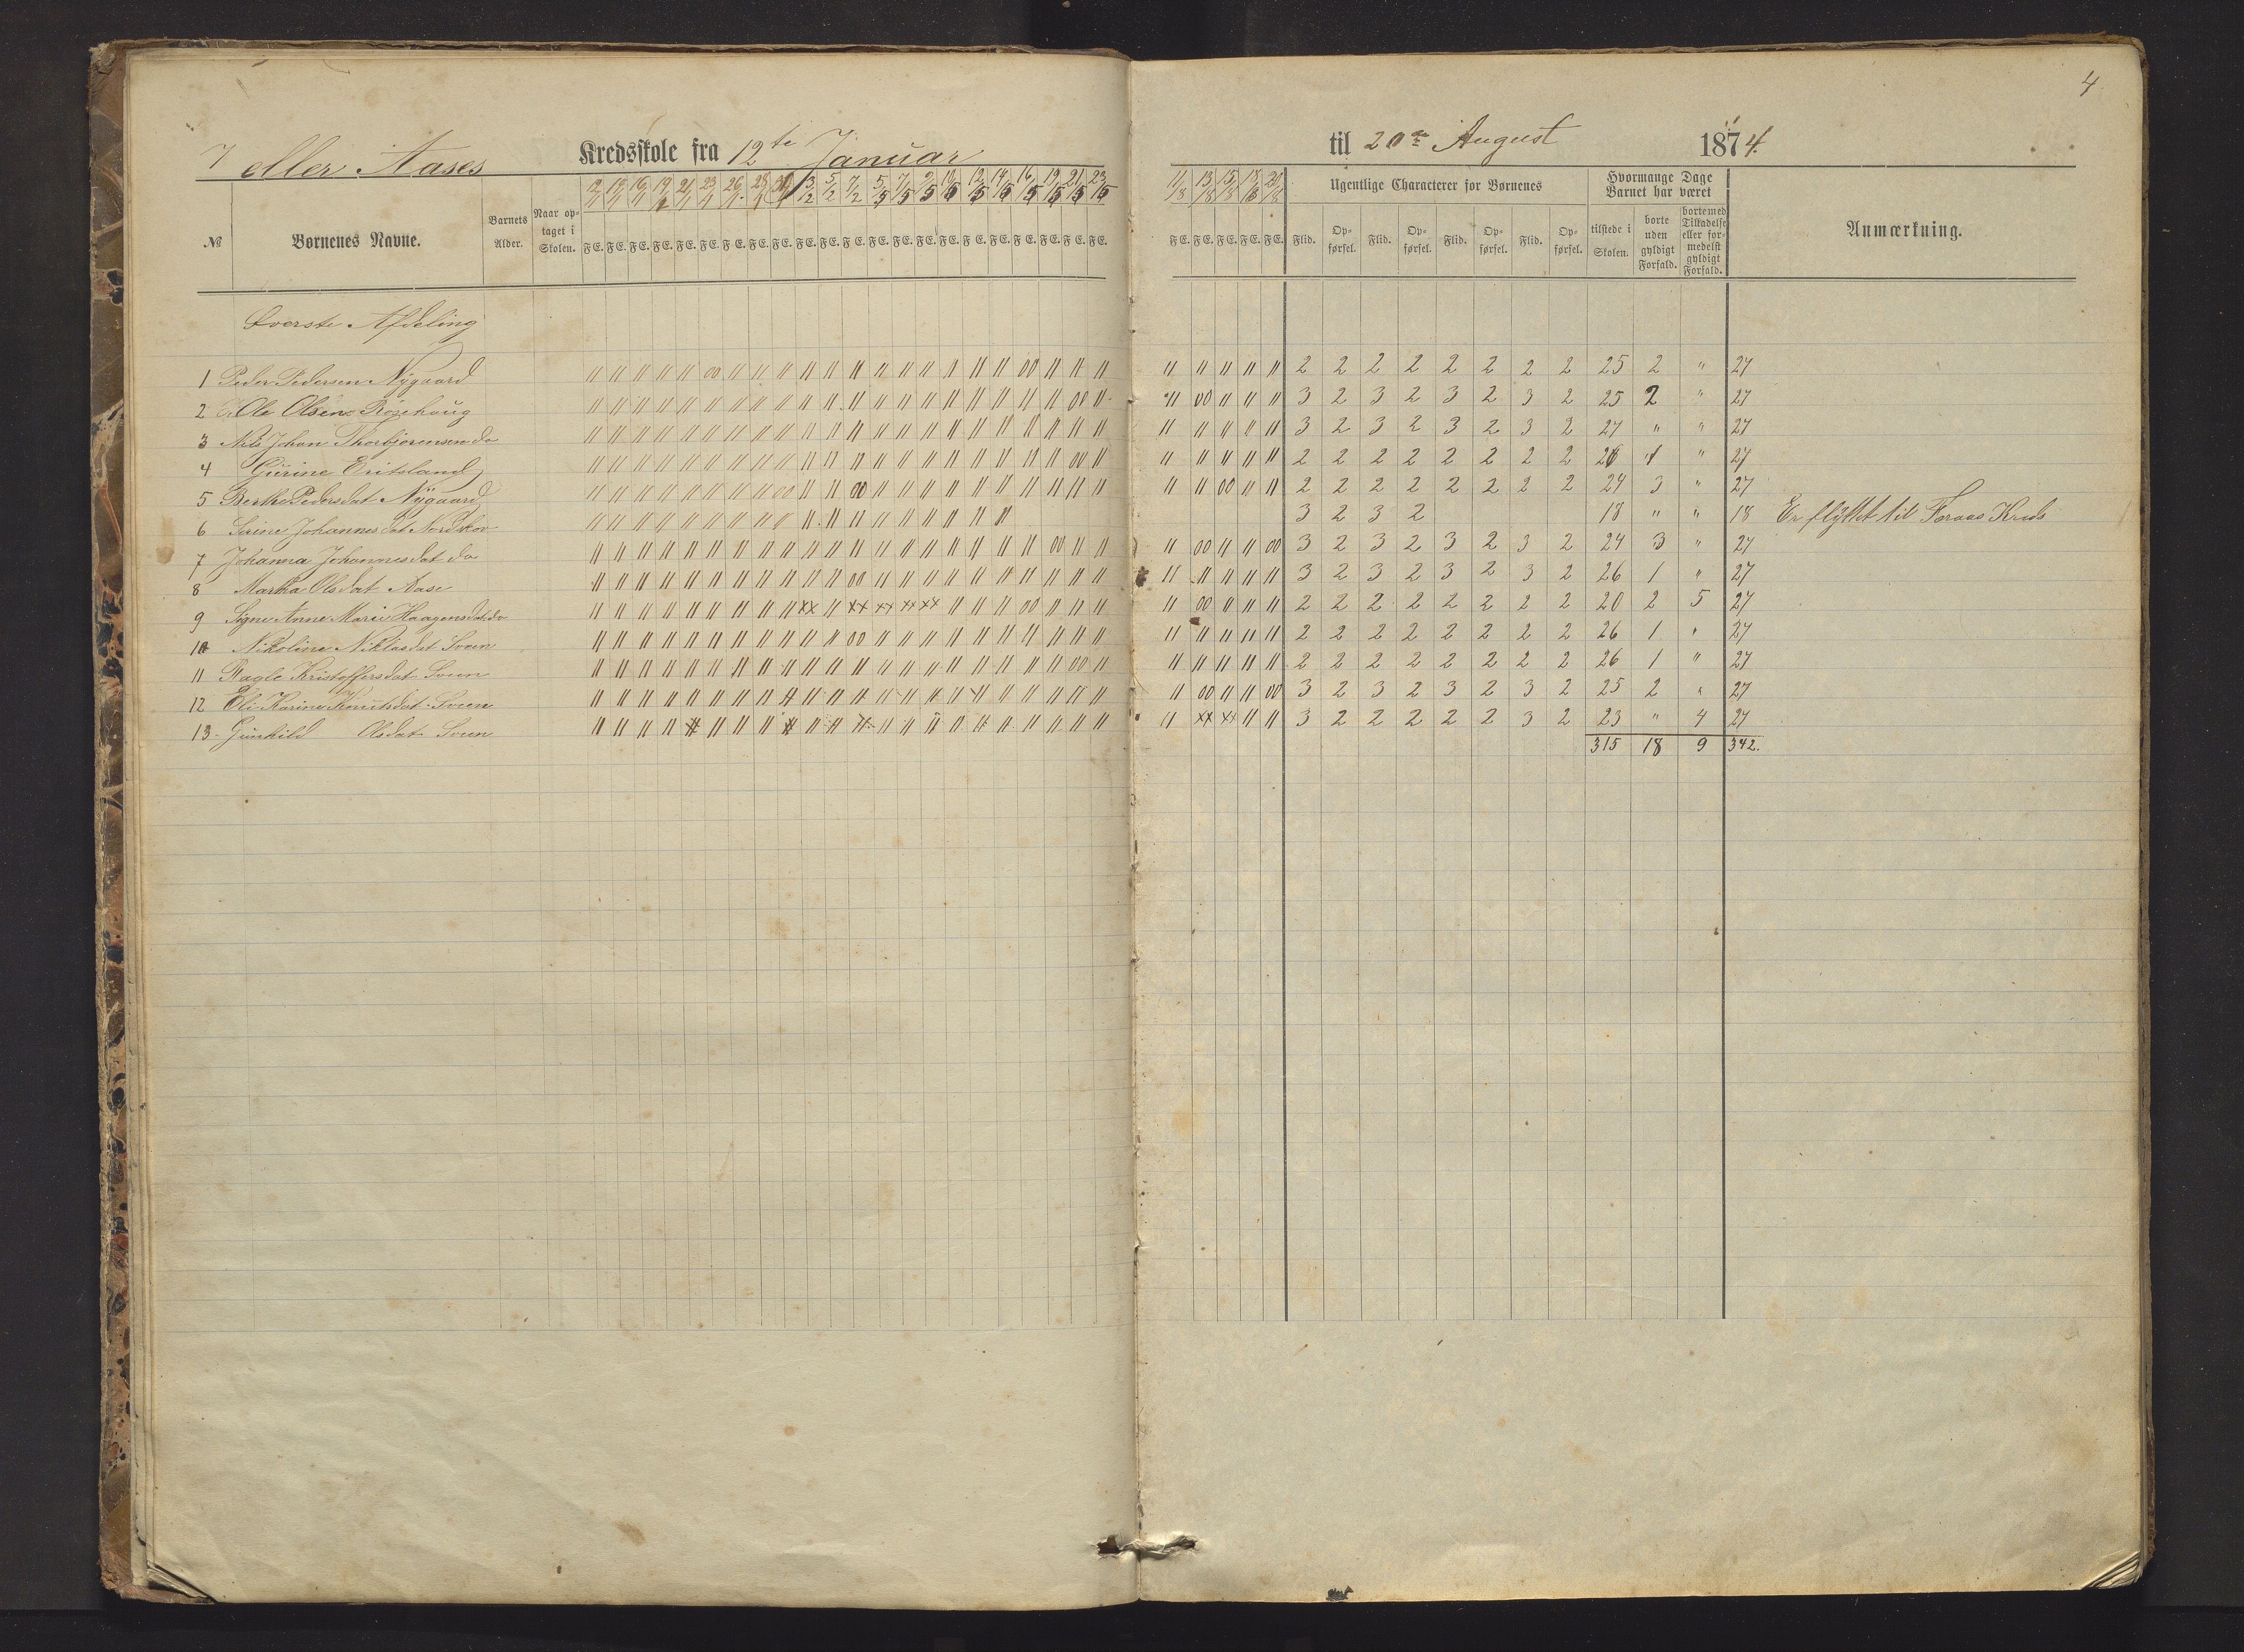 4
7 eller Aases Kredsskole fra 12te Januar til 20de August 1874.
№ Børnenes Navne. Barnets Alder. Naar optaget i Skolen. F.E. Ugentlige Characterer for Børnenes Hvormange Dage Barnet har været Anmærkning.
Flid. Opførsel. Flid. Opførsel. Flid. Opførsel. Flid. Opførsel. tilstede i Skolen. borte uden gyldigt Forfald. borte med Tilladelse eller formedelst gyldigt Forfald.
Øverste Afdeling
1 Peder Pedersen Nygaard 2 2 2 2 2 2 2 2 25 2 " 27
2 Ole Olsen Rozehoug 3 2 3 2 3 2 3 2 25 2 " 27
3 Nils Johan Thorbjørensen do 3 2 3 2 3 2 3 2 27 " " 27
4 Gurine Eritsland 2 2 2 2 2 2 2 2 26 1 " 27
5 Berthe Pedersdat Nygaard 2 2 2 2 2 2 2 2 24 3 " 27
6 Sirine Johannesdat Nordskov 3 2 3 2 18 " " 18 Er flyttet til Foraas Kreds
7 Johanna Johannesdat do 3 2 3 2 3 2 3 2 24 3 " 27
8 Martha Olsdat Aase 3 2 3 2 3 2 3 2 26 1 " 27
9 Signe Anne Marie Haagensdat do 2 2 2 2 2 2 2 2 20 2 5 27
10 Nikoline Niklasdat Sveen 2 2 2 2 2 2 2 2 26 1 " 27
11 Ragle Kristoffersdat Sveen 2 2 2 2 2 2 2 2 26 1 " 27
12 Eli Karine Knutsdat Sveen 3 2 3 2 3 2 3 2 25 2 " 27
13 Gunhild Olsdat Sveen 3 2 2 2 2 2 3 2 23 " 4 27
315 18 9 342.